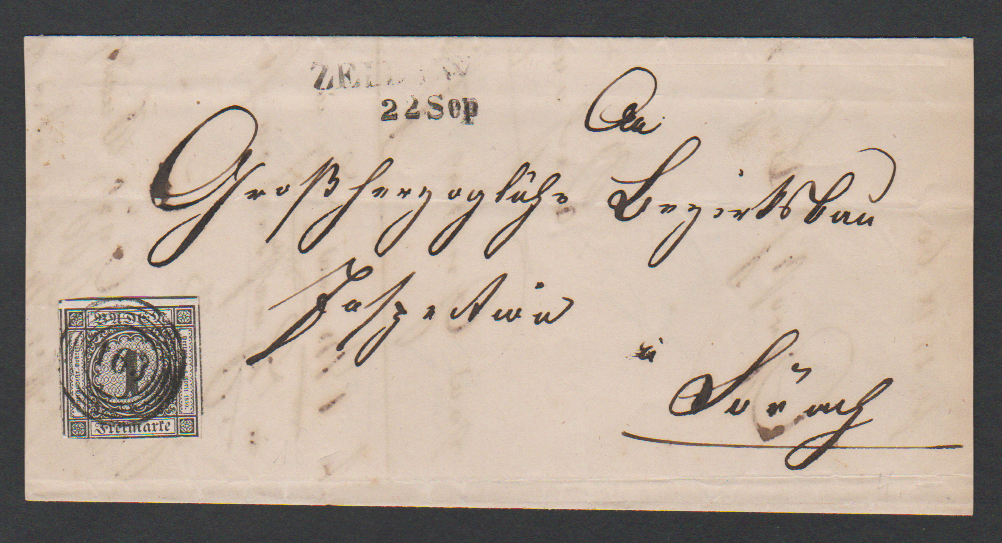 22 Sep
An
Großherzogliche Bezirksbau
Inspection
in
Lörrach
BADEN
1
Freimarke